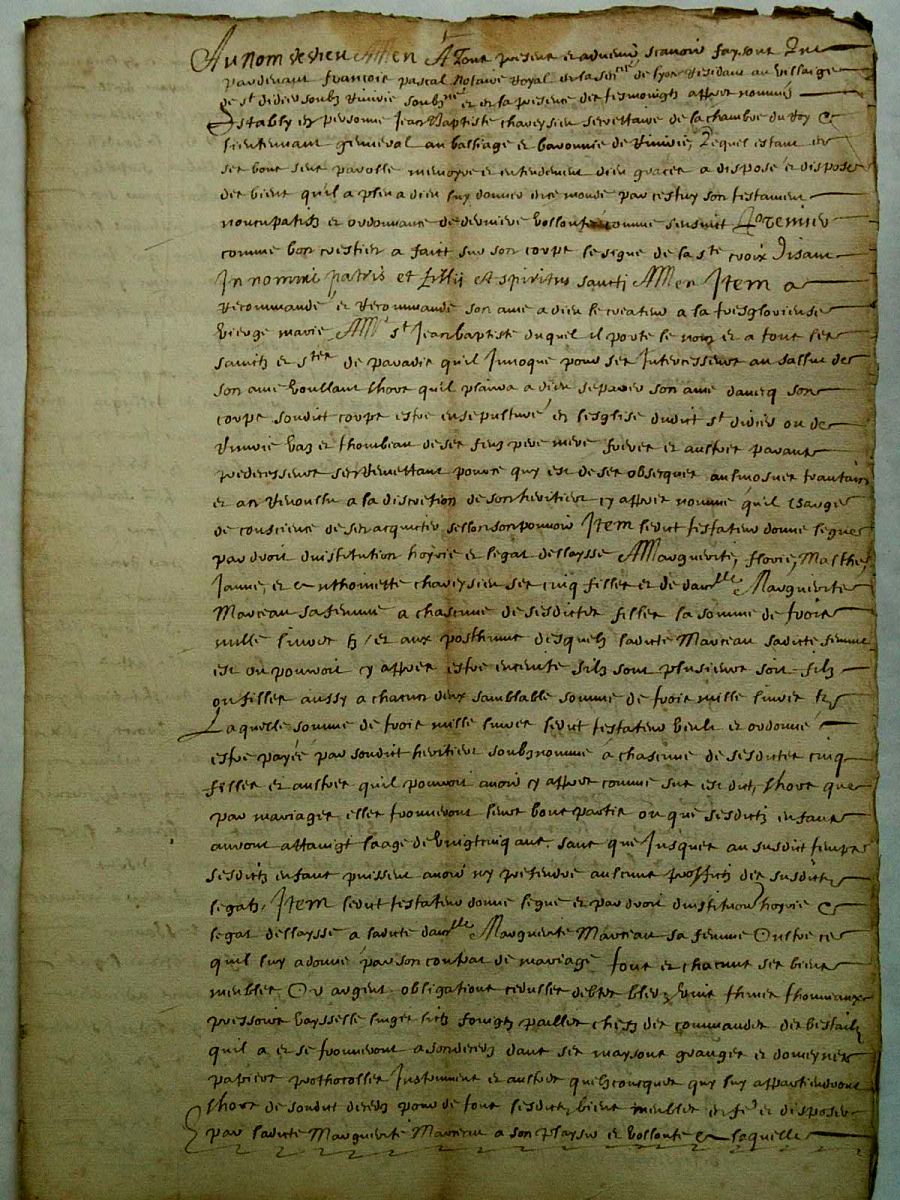 Au nom de dieu Amen A Tous presens et advenir scavoir faysons Que
pardevant francois pascal notaire Royal de la sen.cee de lyon Residant au villaige
de st didier soubz Rivirie soubzne et en la presence des tesmoingtz appres nommés
Estably en personne Jean Baptiste chaveysieu secrettaire de la chambre du Roy &
lieuttenant general au balliage et baronnie de Rivirie, Lequel estant en
ses bons sens parolle memoyre et entendement dieu graces a disposé et dispose
des biens qu'il a pleu a dieu luy donner en ce monde par cestuy son testament
noncupatifz et ordonnance de derniere vollonté comme sensuict Premier
comme bon crestien a faict sur son corps le signe de la ste croix Disant
In nomini patris et fillij et spiritus sancti Amen Item a
Recommandé et Recommande son ame a dieu le createur a la tresglorieuse
vierge marie st Jean baptiste duquel il porte le nom et a tous les
sainctz et stes de paradis qu'il Invoque pour ses Intercesseurs au sallut de
son ame voullant lhors quil plairra a dieu separer son ame davecq son
corps sondict corps estre ensepulturé en lesglise dudict st didier ou de
Rivirie vas et thombeau de ses feuz pere mere freres et aultres parans
predecesseurs se Remettant pour ce quy est de ses obseques aulmosnes
et a la discretion de son heritier cy appres nommé qu'il charge
de conscience de sen acquicter sellon son pouvoir Item ledict testateur donne legue
par droit dinstitution hoyrie et legat dellaysse A Marguerite, florie, Malthe,
Janne, et Anthoinette chaveysieu ses cinq filles et de damlle Marguerite
Marceau sa femme a chascune de sesdictes filles la somme de trois
mille livres tz / et aux posthume desquelz ladicte Marceau sadicte femme
est ou pourroit cy appres estre enceinte silz sont plusieurs soit filz
ou filles aussy a chacun deux samblable somme de trois mille livres tz
Laquelle somme de trois mille livres ledict testateur veult et ordonne
estre payée par sondict heritier soubznommé a chascune de sesdictes cinq
filles et aultres quil pourroit avoir cy appres comme sus est dict, lhors que
par mariages elles trouveront leurs bons partis ou que sesdictz enfans
auront attaingt laage de vingtcinq ans, sans que Jusques au susdict temps
sesdictz enfans puissent avoir ny pretendre aulcuns proffictz des susdictz
legatz, Item ledict testateur donne legue et par droit dinstitution hoyrie &
legat dellaysse a ladicte damlle Marguerite Marceau sa femme Oultre ce
quil luy a donné par son contrat de mariage Tous et chacuns ses biens
meubles Or argent obligations cedulles debtes bledz vins thines thonneaux
pressoirs vaysselle linges lictz foingtz pailles des commandes de bestailz
quil a et se trouveront a son deces dans ses maysons granges et domeynes
papiers prothocolles Instrumens et aultres quelzconques quy luy appartiendront
lhors de sondict deces pour de tous lesdictz biens meubles et disposer
par ladicte Marguerite Marceau a son playsir et vollonté & laquelle